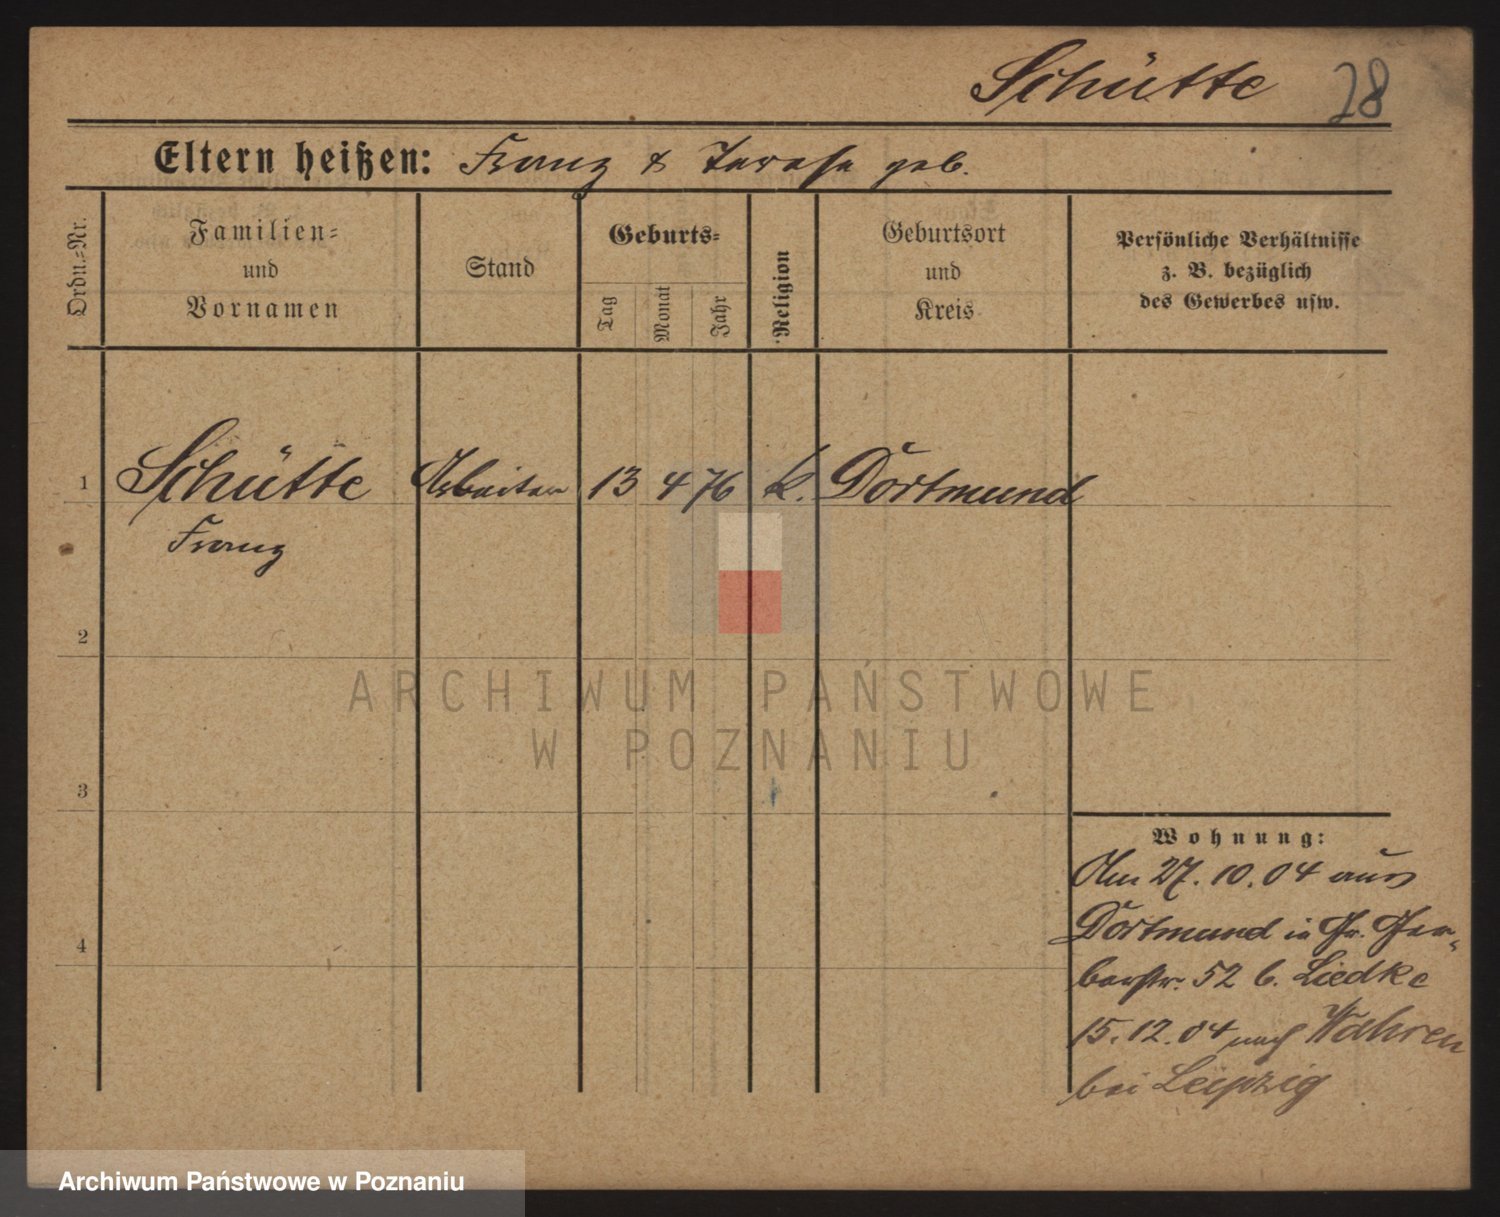 Schütte 28
Eltern heißen: Franz & Terese geb.
Ordn.-Nr.
Familien-
und
Vornamen
Stand
Geburts-
Tag
Monat
Jahr
Religion
Geburtsort
und
Kreis
Persönliche Verhältnisse
z. B. bezüglich
des Gewerbes usw.
1 Schütte Arbeiter 13 4 76 k. Dortmund
Franz
2
ARCHIWUM PAŃSTWOWE
W POZNANIU
3
Wohnung:
Am 27.10.04 aus
4 Dortmund in Gr. Ger-
berstr. 52 b. Liedke
15.12.04 nach Wahren
bei Leipzig
Archiwum Państwowe w Poznaniu